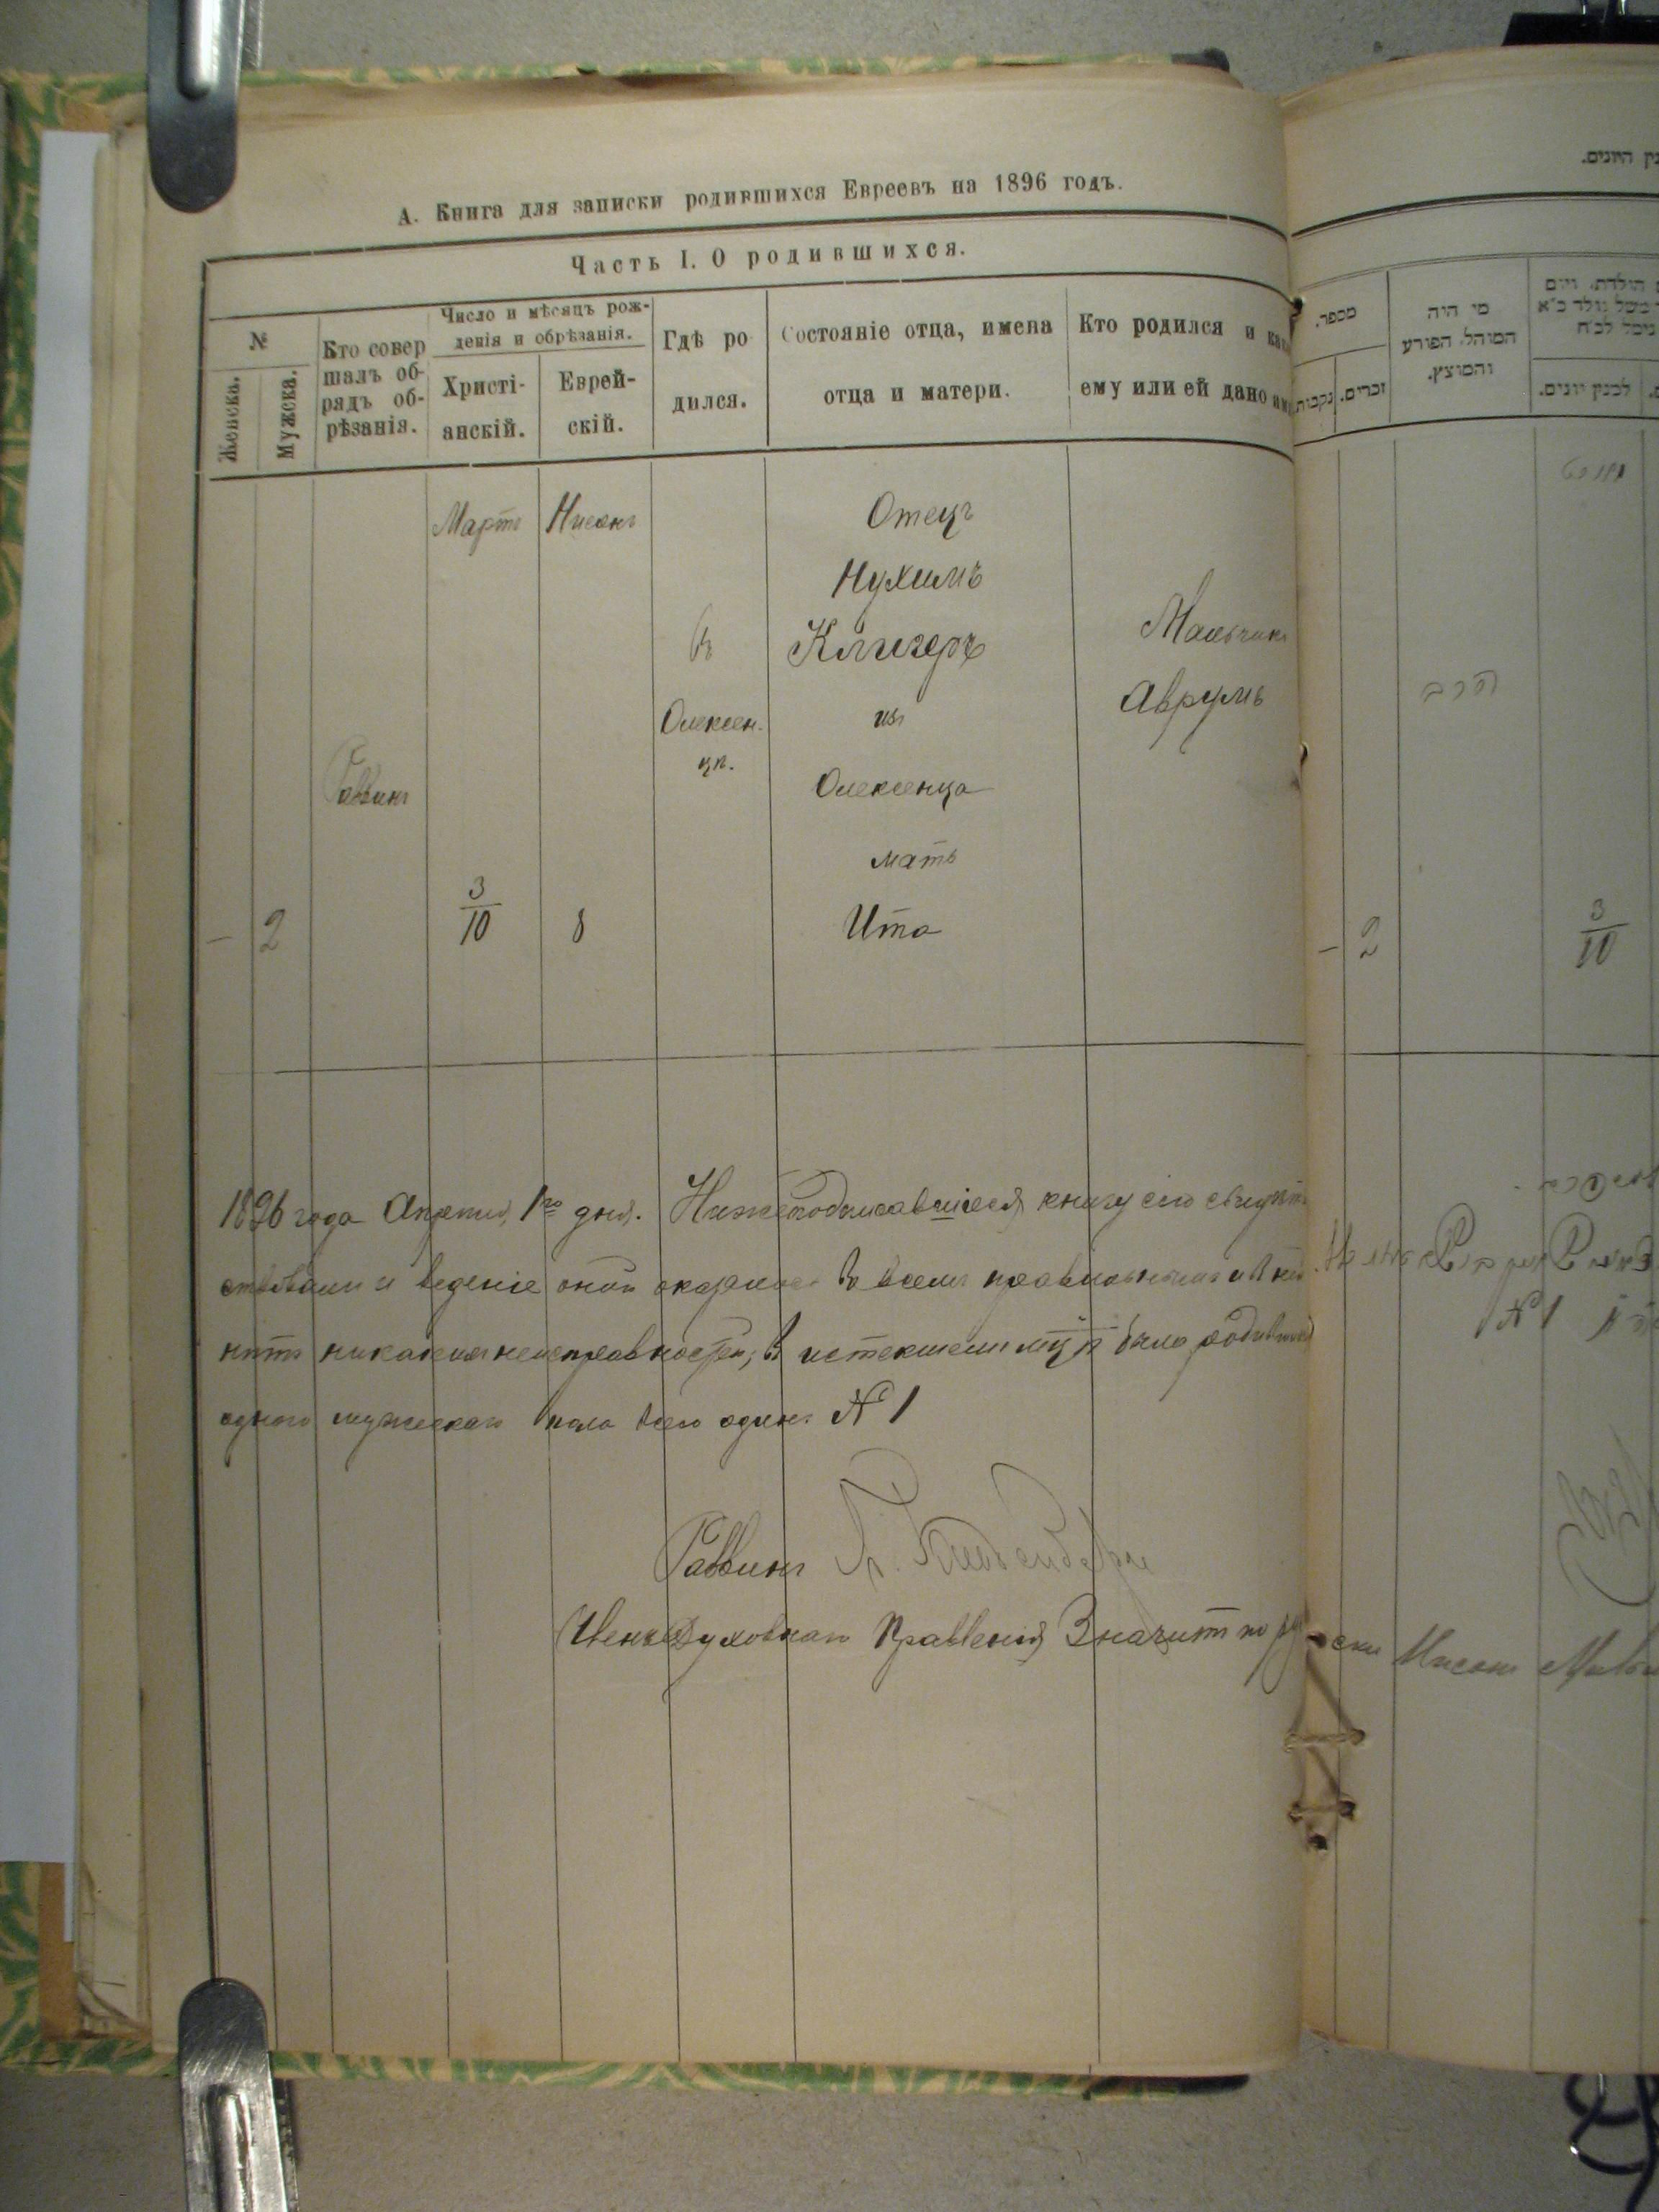 А. Книга для записки родившихся Евреевъ на 1896 годъ.
Часть I. О родившихся.
№
Женска.
Мужска.
Кто совер
шалъ об-
рядъ об-
рѣзанія.
Число и мѣсяцъ рож-
денія и обрѣзанія.
Христі-
анскій.
Еврей-
скій.
Гдѣ ро
дился.
Состояніе отца, имена
отца и матери.
Кто родился и
ему или ей дано
Мартъ
Нисанъ
Отецъ
Нухимъ
Клигеръ
изъ
Олексенца
мать
Ита
въ
Олексен.
цѣ.
Мальчикъ
Аврумъ
Раввинъ
– 2
3
10
8
1896 года Апрѣля, 1го дня. Нижеподписавшіеся книгу сію свидѣтель
ствовали и веденіе оной оказалось во всемъ правильнымъ и въ ней
нѣтъ никакихъ неисправностей; въ истекшемъ мцѣ было родившихся
одного мужескаго пола всего одинъ № 1
Раввинъ
Членъ Духовнаго Правленія Значитъ по русски
מספר.
נקבות
זכרים.
מי היה
המוהל, הפורע
והמוצץ.
לכנין יונים.
הרב
– 2
3
10
№ 1